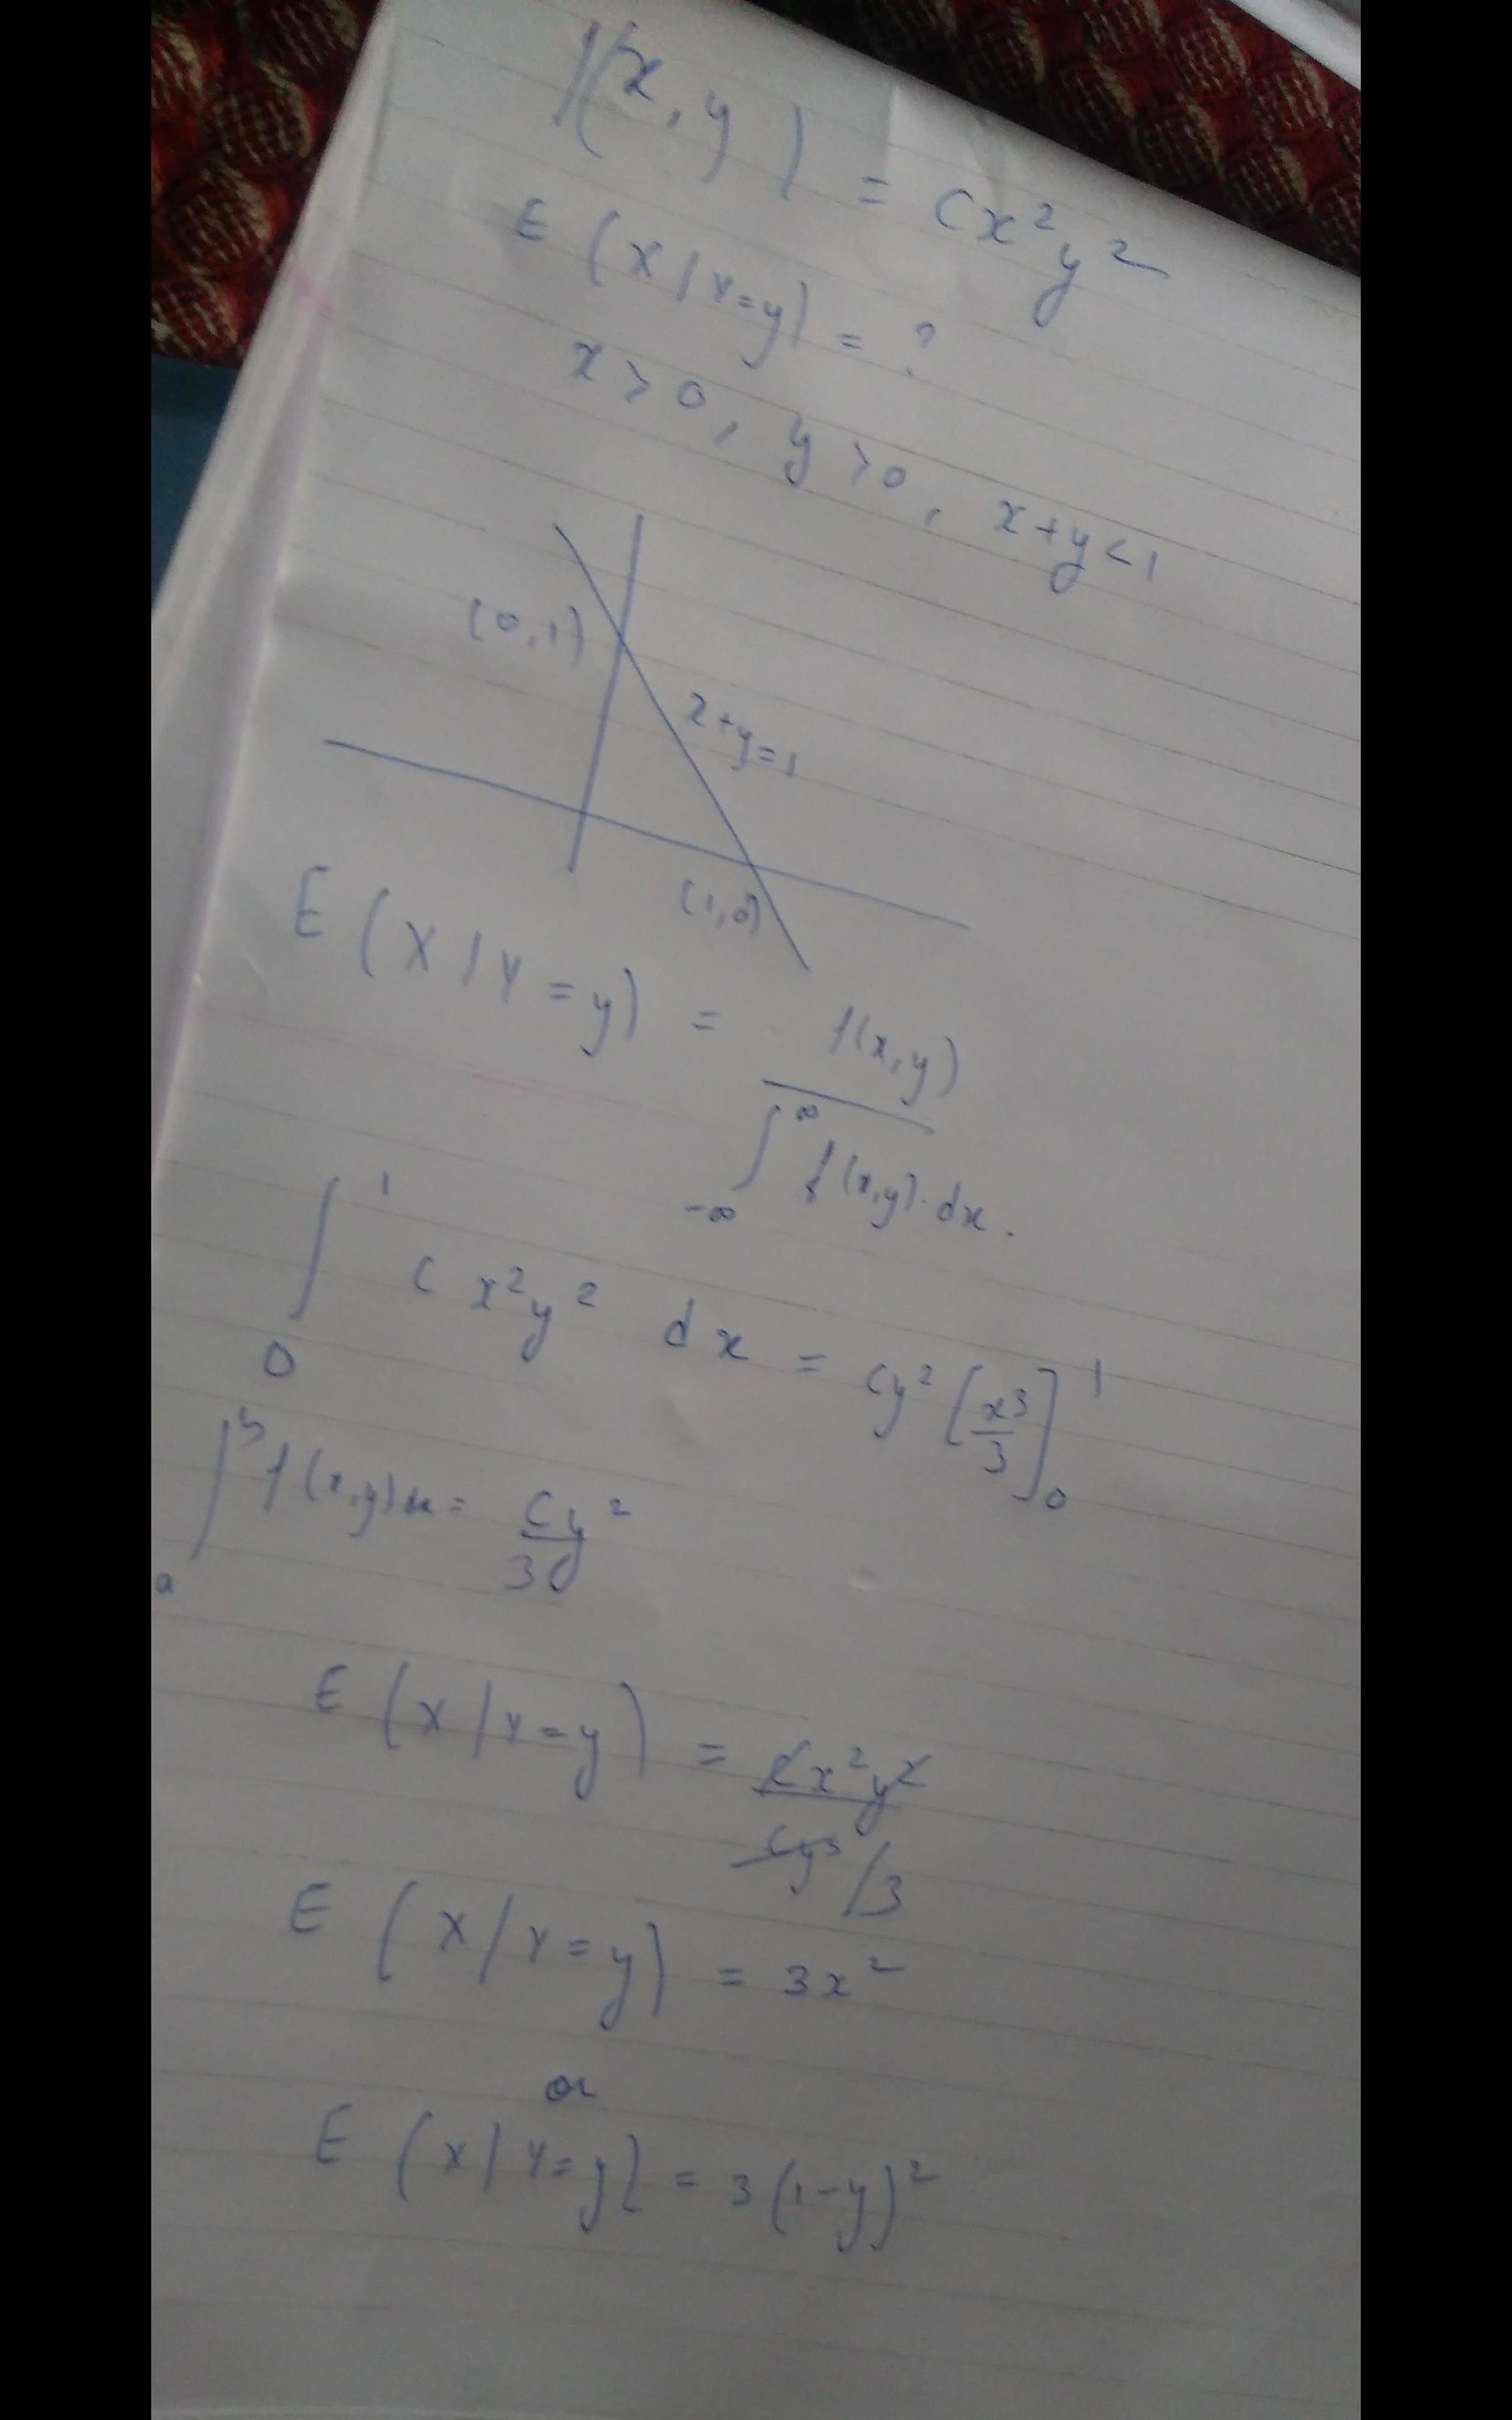 f(x,y) = cx²y²
E(X|Y=y) = ?
x>0, y>0, x+y<1
(0,1)
x+y=1
(1,0)
E(X|Y=y) = f(x,y) / ∫_{-∞}^{∞} f(x,y).dx.
∫_0^1 c x²y² dx = cy² [x³/3]_0^1
∫_a^b f(x,y)dx = cy²/3
E(X|Y=y) = cx²y² / cy²/3
E(X|Y=y) = 3x²
or
E(X|Y=y) = 3(1-y)²